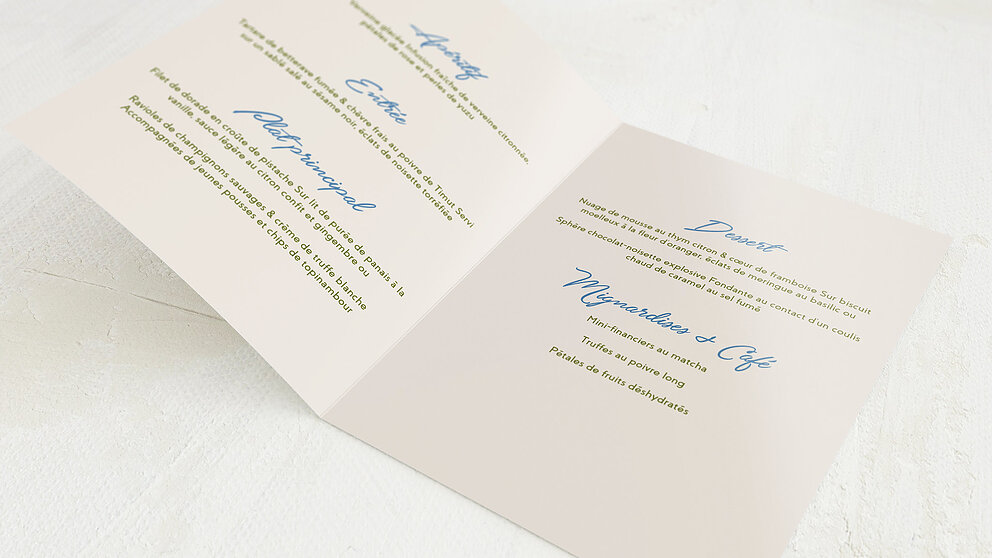 Apéritif
Verveine glacée Infusion fraîche de verveine citronnée,
pétales de rose et perles de yuzu
Entrée
Tartare de betterave fumée & chèvre frais au poivre de Timut Servi
sur un sablé salé au sésame noir, éclats de noisette torréfiée
Plat principal
Filet de dorade en croûte de pistache Sur lit de purée de panais à la
vanille, sauce légère au citron confit et gingembre ou
Ravioles de champignons sauvages & crème de truffe blanche
Accompagnées de jeunes pousses et chips de topinambour
Dessert
Nuage de mousse au thym citron & cœur de framboise Sur biscuit
moelleux à la fleur d'oranger, éclats de meringue au basilic ou
Sphère chocolat-noisette explosive Fondante au contact d'un coulis
chaud de caramel au sel fumé
Mignardises & Café
Mini-financiers au matcha
Truffes au poivre long
Pétales de fruits déshydratés